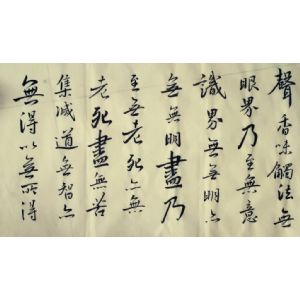 聲香味觸法無
眼界乃至無意
識界無無明亦
無無明盡乃
至無老死亦無
老死盡無苦
集滅道無智亦
無得以無所得